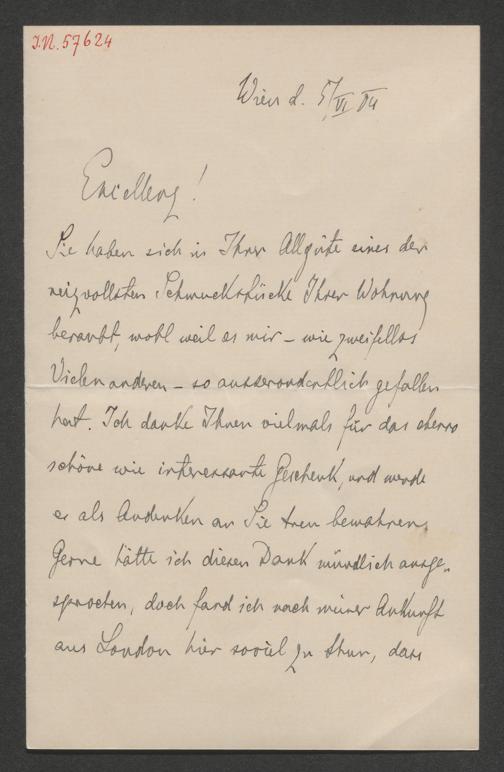 I.N. 57624
Wien d. 5/VI 04
Excellenz!
Sie haben sich in Ihrer Allgüte eines der
reizvollsten Schmuckstücke Ihrer Wohnung
beraubt, wohl weil es mir – wie zweifellos
Vielen anderen – so ausserordentlich gefallen
hat. Ich danke Ihnen vielmals für das ebenso
schöne wie interessante Geschenk, und werde
es als Andenken an Sie treu bewahren.
Gerne hätte ich diesen Dank mündlich ausge-
sprochen, doch fand ich nach meiner Ankunft
aus London hier soviel zu thun, dass